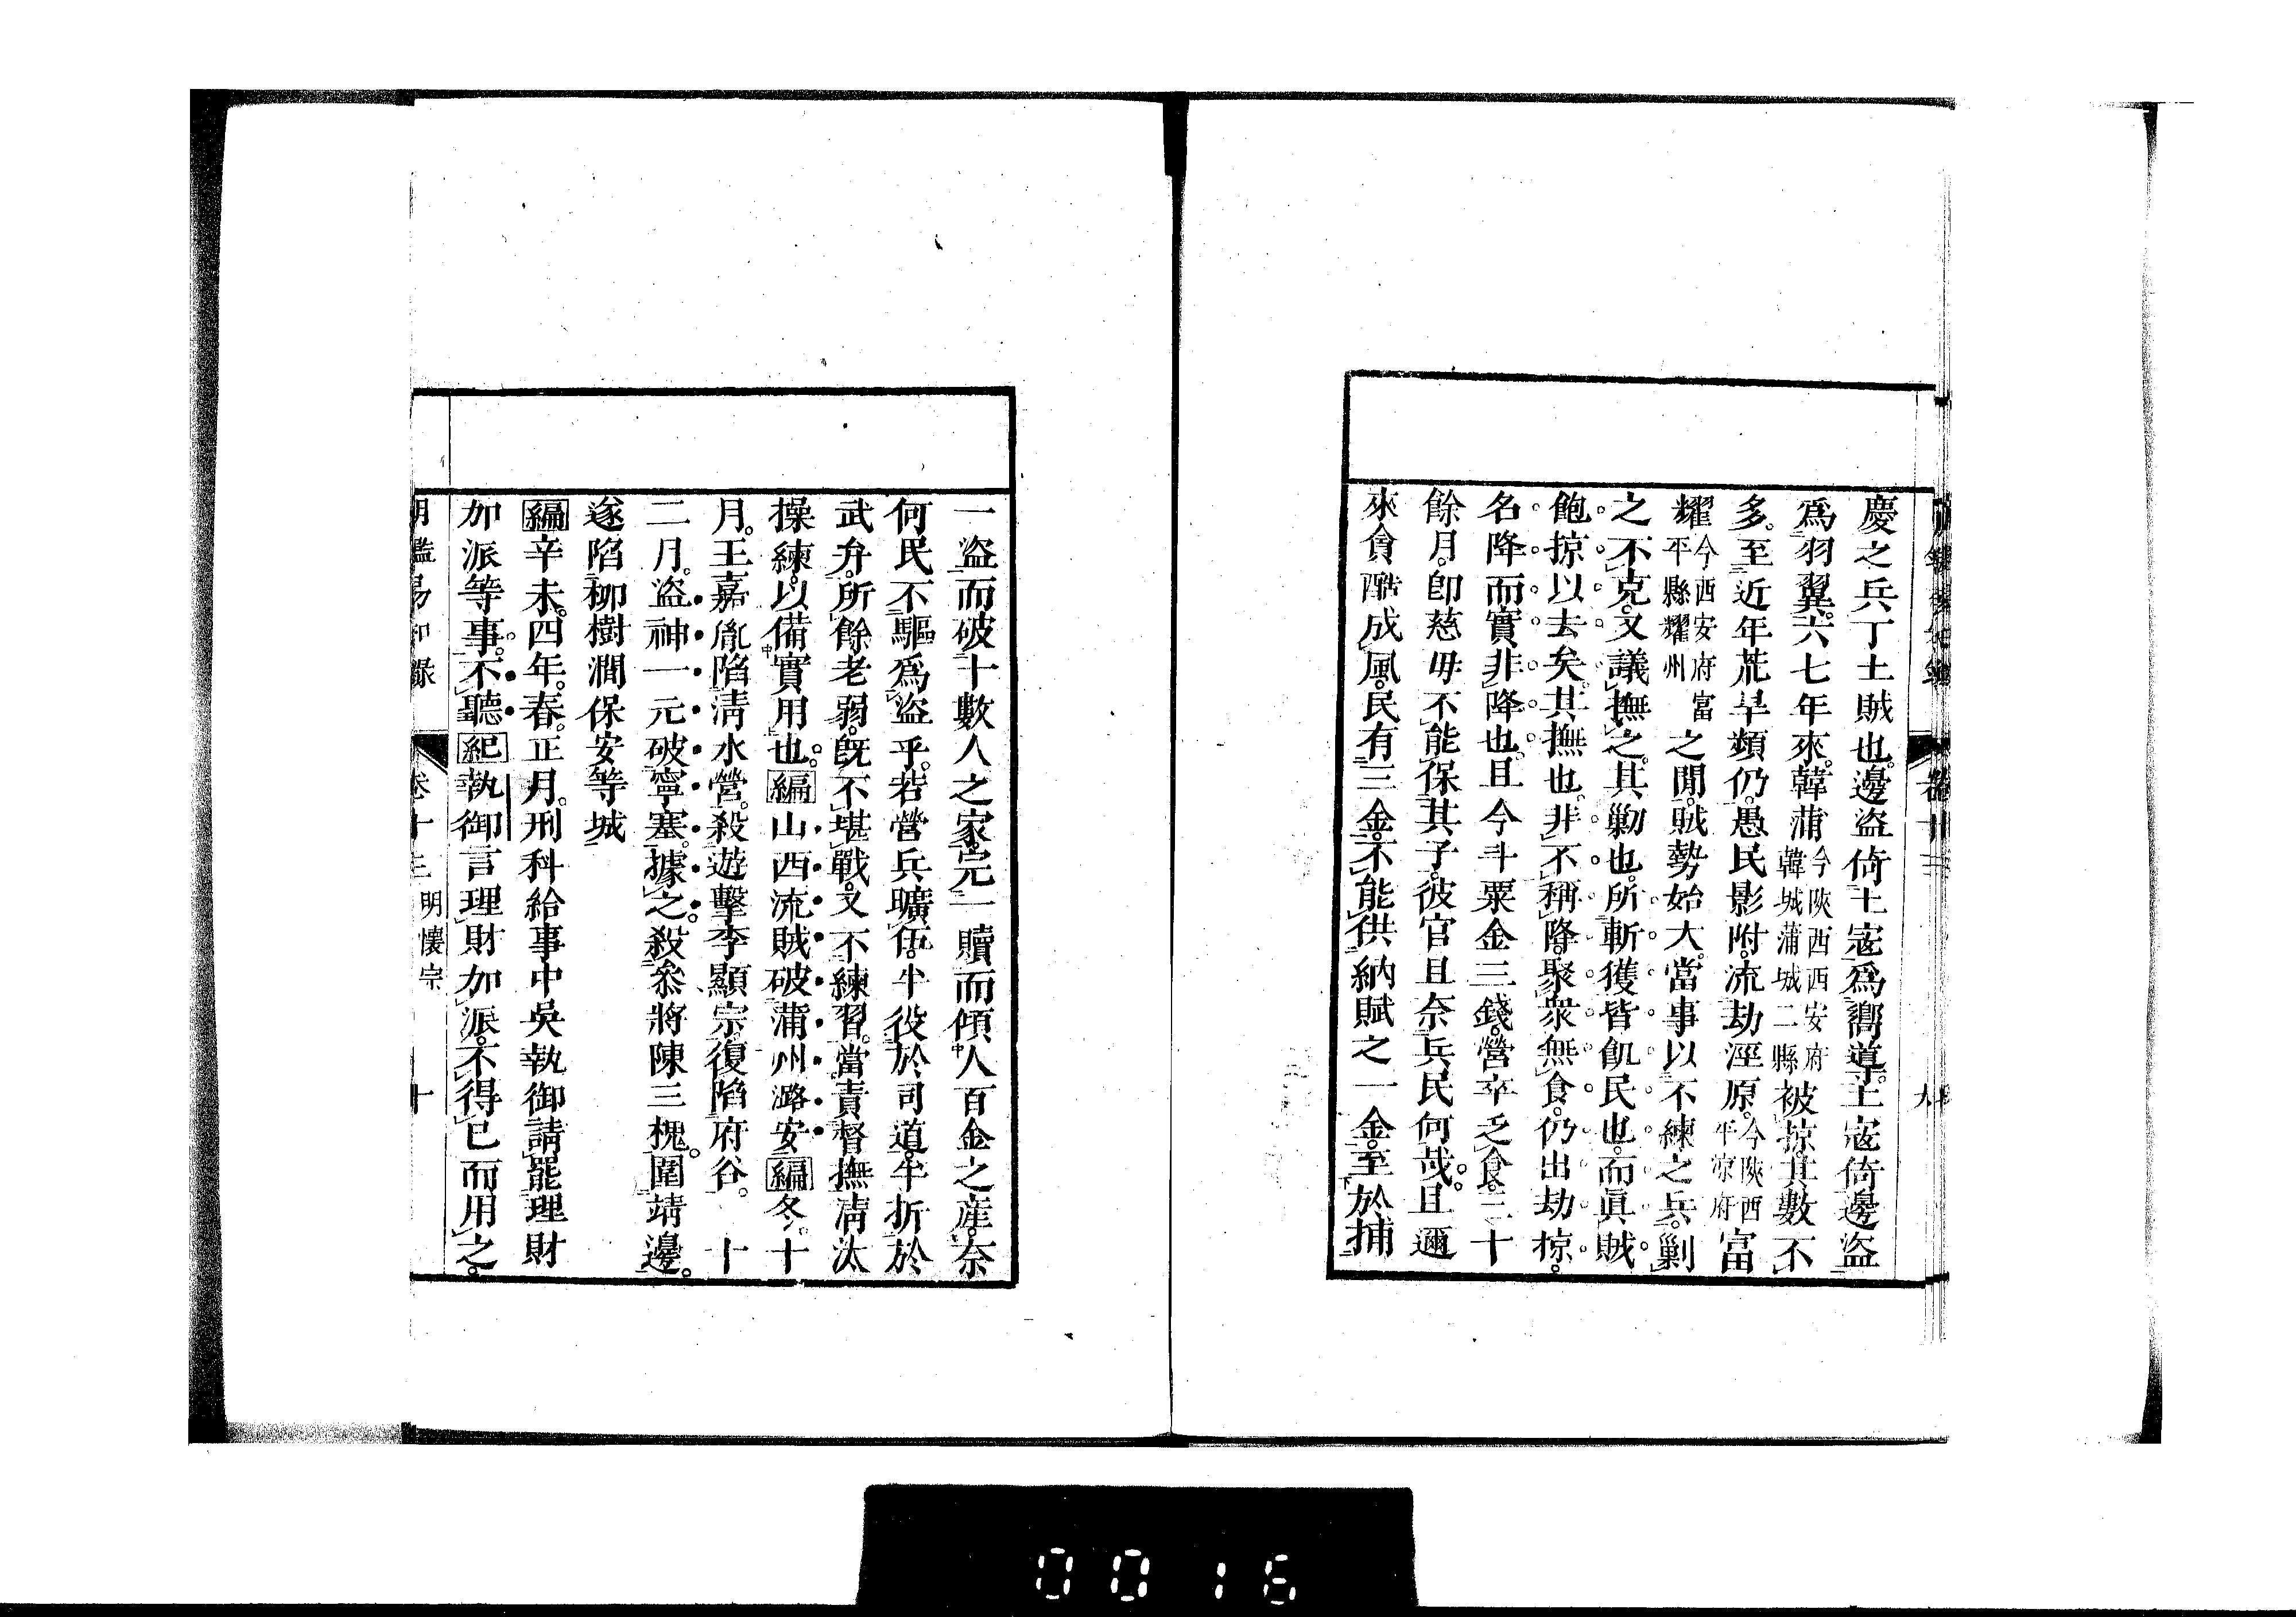 慶之兵丁土賊也。邊盜倚土寇爲嚮道。土寇倚邊盜
爲羽翼。六七年來。韓蒲今陝西西安府韓城蒲城二縣被掠。其數不
多。至近年荒旱頻仍。愚民影附。流劫涇原。今陝西平凉府富
耀今西安府富平縣耀州之閒。賊勢始大。當事以不練之兵。剿
之不克。又議撫之。其剿也。所斬獲皆飢民也。而眞賊
飽掠以去矣。其撫也。非不稱降。聚衆無食。仍出劫掠。
名降而實非降也。且今斗粟金三錢。營卒乏食。三十
餘月。卽慈母不能保其子。彼官且奈兵民何哉。且邇
來貪酷成風。民有三金。不能供納賦之一金。至於捕
一盜而破十數人之家。完一贖而傾人百金之產。奈
何民不驅爲盜乎。若營兵曠伍。半役於司道。半折於
武弁。所餘老弱。旣不堪戰。又不練習。當責督撫淸汰
操練。以備實用也。編山西流賊破蒲州潞安編冬。十
月。王嘉胤陷淸水營。殺遊擊李顯宗。復陷府谷。十
二月。盜神一元破寧塞。據之。殺叅將陳三槐。圍靖邊。
遂陷柳樹澗保安等城
編辛未。四年。春。正月。刑科給事中吳執御請罷理財
加派等事。不聽紀執御言理財加派。不得已而用之。
卷十三 明懷宗 十